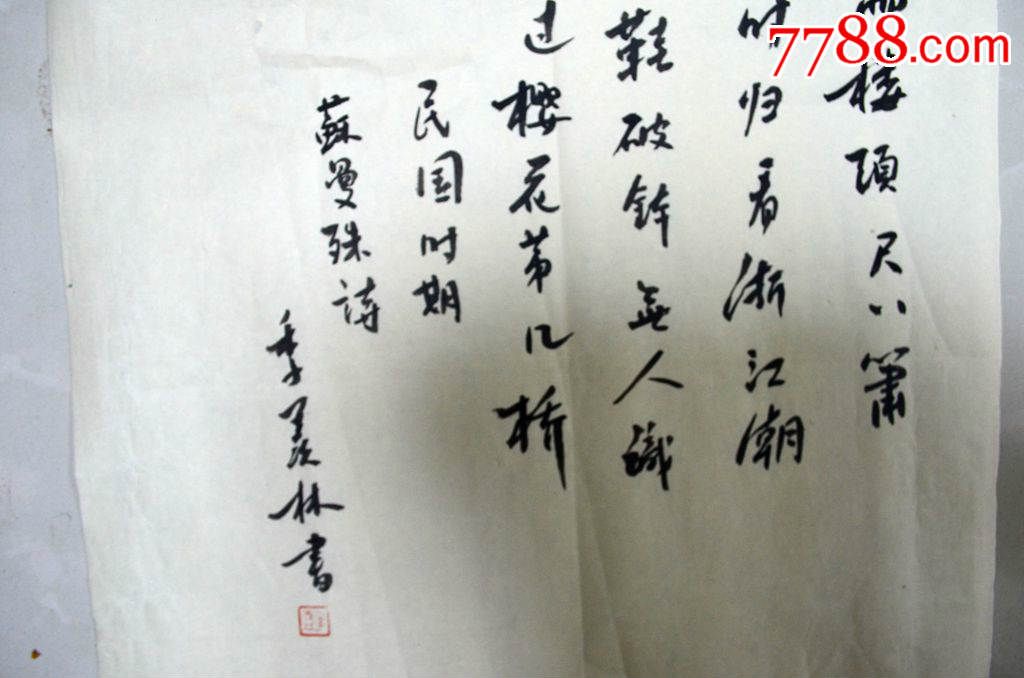 7788.com
楼頭尺八簫
时归看浙江潮
鞋破鉢無人識
过櫻花第几橋
民国时期
蘇曼殊詩
季羡林書